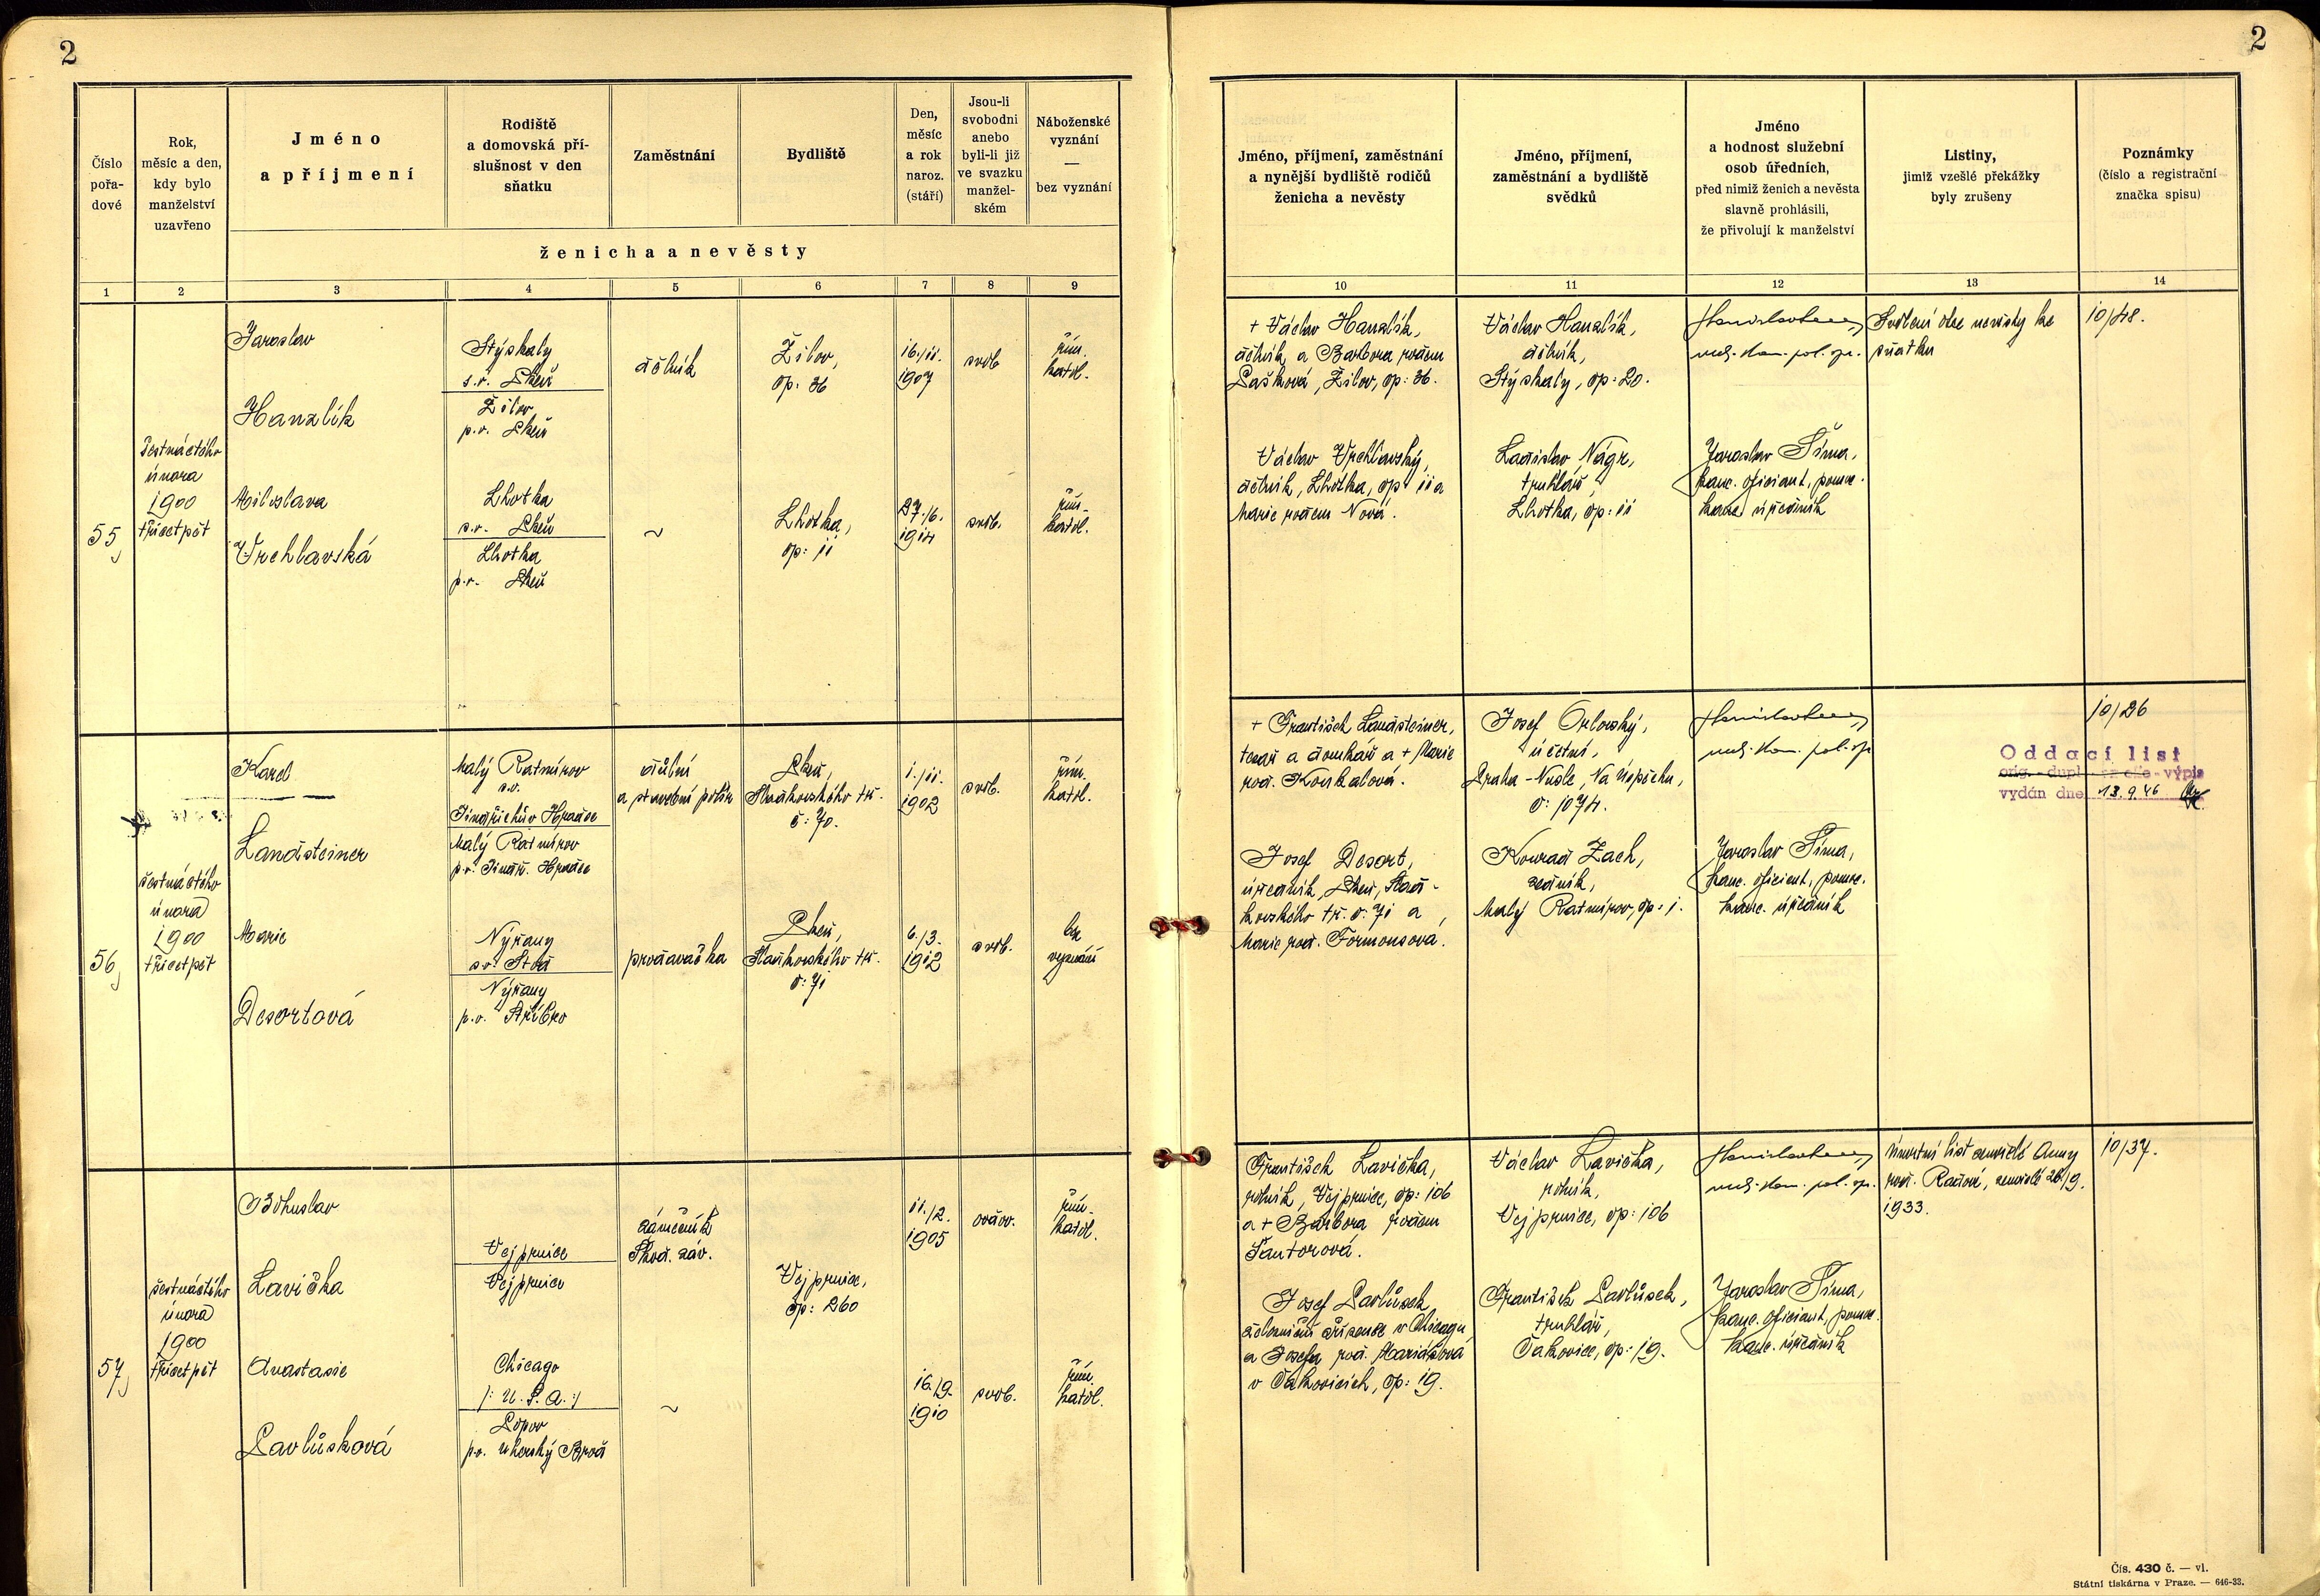 2
2
Číslo
pořa-
dové
Rok,
měsíc a den,
kdy bylo
manželství
uzavřeno
Jméno
a příjmení
Rodiště
a domovská pří-
slušnost v den
sňatku
Zaměstnání
Bydliště
Den,
měsíc
a rok
naroz.
(stáří)
Jsou-li
svobodni
anebo
byli-li již
ve svazku
manžel-
ském
Náboženské
vyznání
—
bez vyznání
ženicha a nevěsty
Jméno, příjmení, zaměstnání
a nynější bydliště rodičů
ženicha a nevěsty
Jméno, příjmení,
zaměstnání a bydliště
svědků
Jméno
a hodnost služební
osob úředních,
před nimiž ženich a nevěsta
slavně prohlásili,
že přivolují k manželství
Listiny,
jimiž vzešlé překážky
byly zrušeny
Poznámky
(číslo a registrační
značka spisu)
1 2 3 4 5 6 7 8 9 10 11 12 13 14
55
šestnáctého
února
1900
třicetpět
Jaroslav
Hanzlík
Stýskaly
s.o. Plzeň
Žilov
p.o. Plzeň
dělník
Žilov,
čp: 36
16./11.
1907
svob
řím.
katol.
Miloslava
Vrchlavská
Lhotka
s.o. Plzeň
Lhotka
p.o. Plzeň
~
Lhotka,
čp: 11
27./6.
1914
svob.
řím.
katol.
+ Václav Hanzlík,
dělník a Barbora rozem
Pašková, Žilov, čp: 36.
Václav Vrchlavský,
dělník, Lhotka, čp: 11 a
Marie rozem Nová.
Václav Hanzlík,
dělník,
Stýskaly, čp: 20.
Ladislav Nágr,
truhlář,
Lhotka, čp: 11
vrch. kom. pol. spr.
Jaroslav Šíma,
kanc. oficiant, pomoc.
kanc. úředník
Svolení otce nevěsty ke
sňatku
10/48.
56
šestnáctého
února
1900
třicetpět
Karel
Landsteiner
Malý Ratmírov
s.o.
Jindřichův Hradec
Malý Ratmírov
p.o. Jindř. Hradec
důlní
a stavební polír
Plzeň,
Sladkovského tř.
č: 70.
1./11.
1902
svob.
řím.
katol.
Marie
Desortová
Nýřany
s.o. Stod
Nýřany
p.o. Stříbro
prodavačka
Plzeň,
Sladkovského tř.
č: 71
6./3.
1912
svob.
bez
vyznání
+ František Landsteiner,
tesař a domkář a + Marie
roz. Koukalová.
Josef Desort,
úředník, Plzeň, Slad-
kovského tř. č: 71 a
Marie roz. Formonsová.
Josef Orlovský,
účetní,
Praha - Nusle, Na Úspěchu,
č: 1074.
Konrad Zach,
zedník,
Malý Ratmírov, čp: 1.
vrch. kom. pol. spr.
Jaroslav Šíma,
kanc. oficiant, pomoc.
kanc. úředník
10/26
Oddací list
orig. - dupl. - výpis
vydán dne 13.9.46
57
šestnáctého
února
1900
třicetpět
Bohuslav
Lavička
Vejprnice
Vejprnice
zámečník
Škod. záv.
Vejprnice,
čp: 260
11./2.
1905
ovdov.
řím.
katol.
Anastasie
Pavlůsková
Chicago
/: U. S. A. :/
Lopov
p.o. Uherský Brod
~
16./9.
1910
svob.
řím.
katol.
František Lavička,
rolník, Vejprnice, čp: 106
a + Barbora rozem
Šantorová.
Josef Pavlůsek
železniční zřízenec v Chicagu
a Josefa roz. Mariášová
v Čakovicích, čp: 19.
Václav Lavička,
rolník,
Vejprnice, čp: 106
František Pavlůsek,
truhlář,
Čakovice, čp: 19.
vrch. kom. pol. spr.
Jaroslav Šíma,
kanc. oficiant, pomoc.
kanc. úředník
Úmrtní list zemřelé Anny
roz. Radové, zemřelé 26./9.
1933.
10/37.
Čís. 430 č. — vl.
Státní tiskárna v Praze. — 646-33.